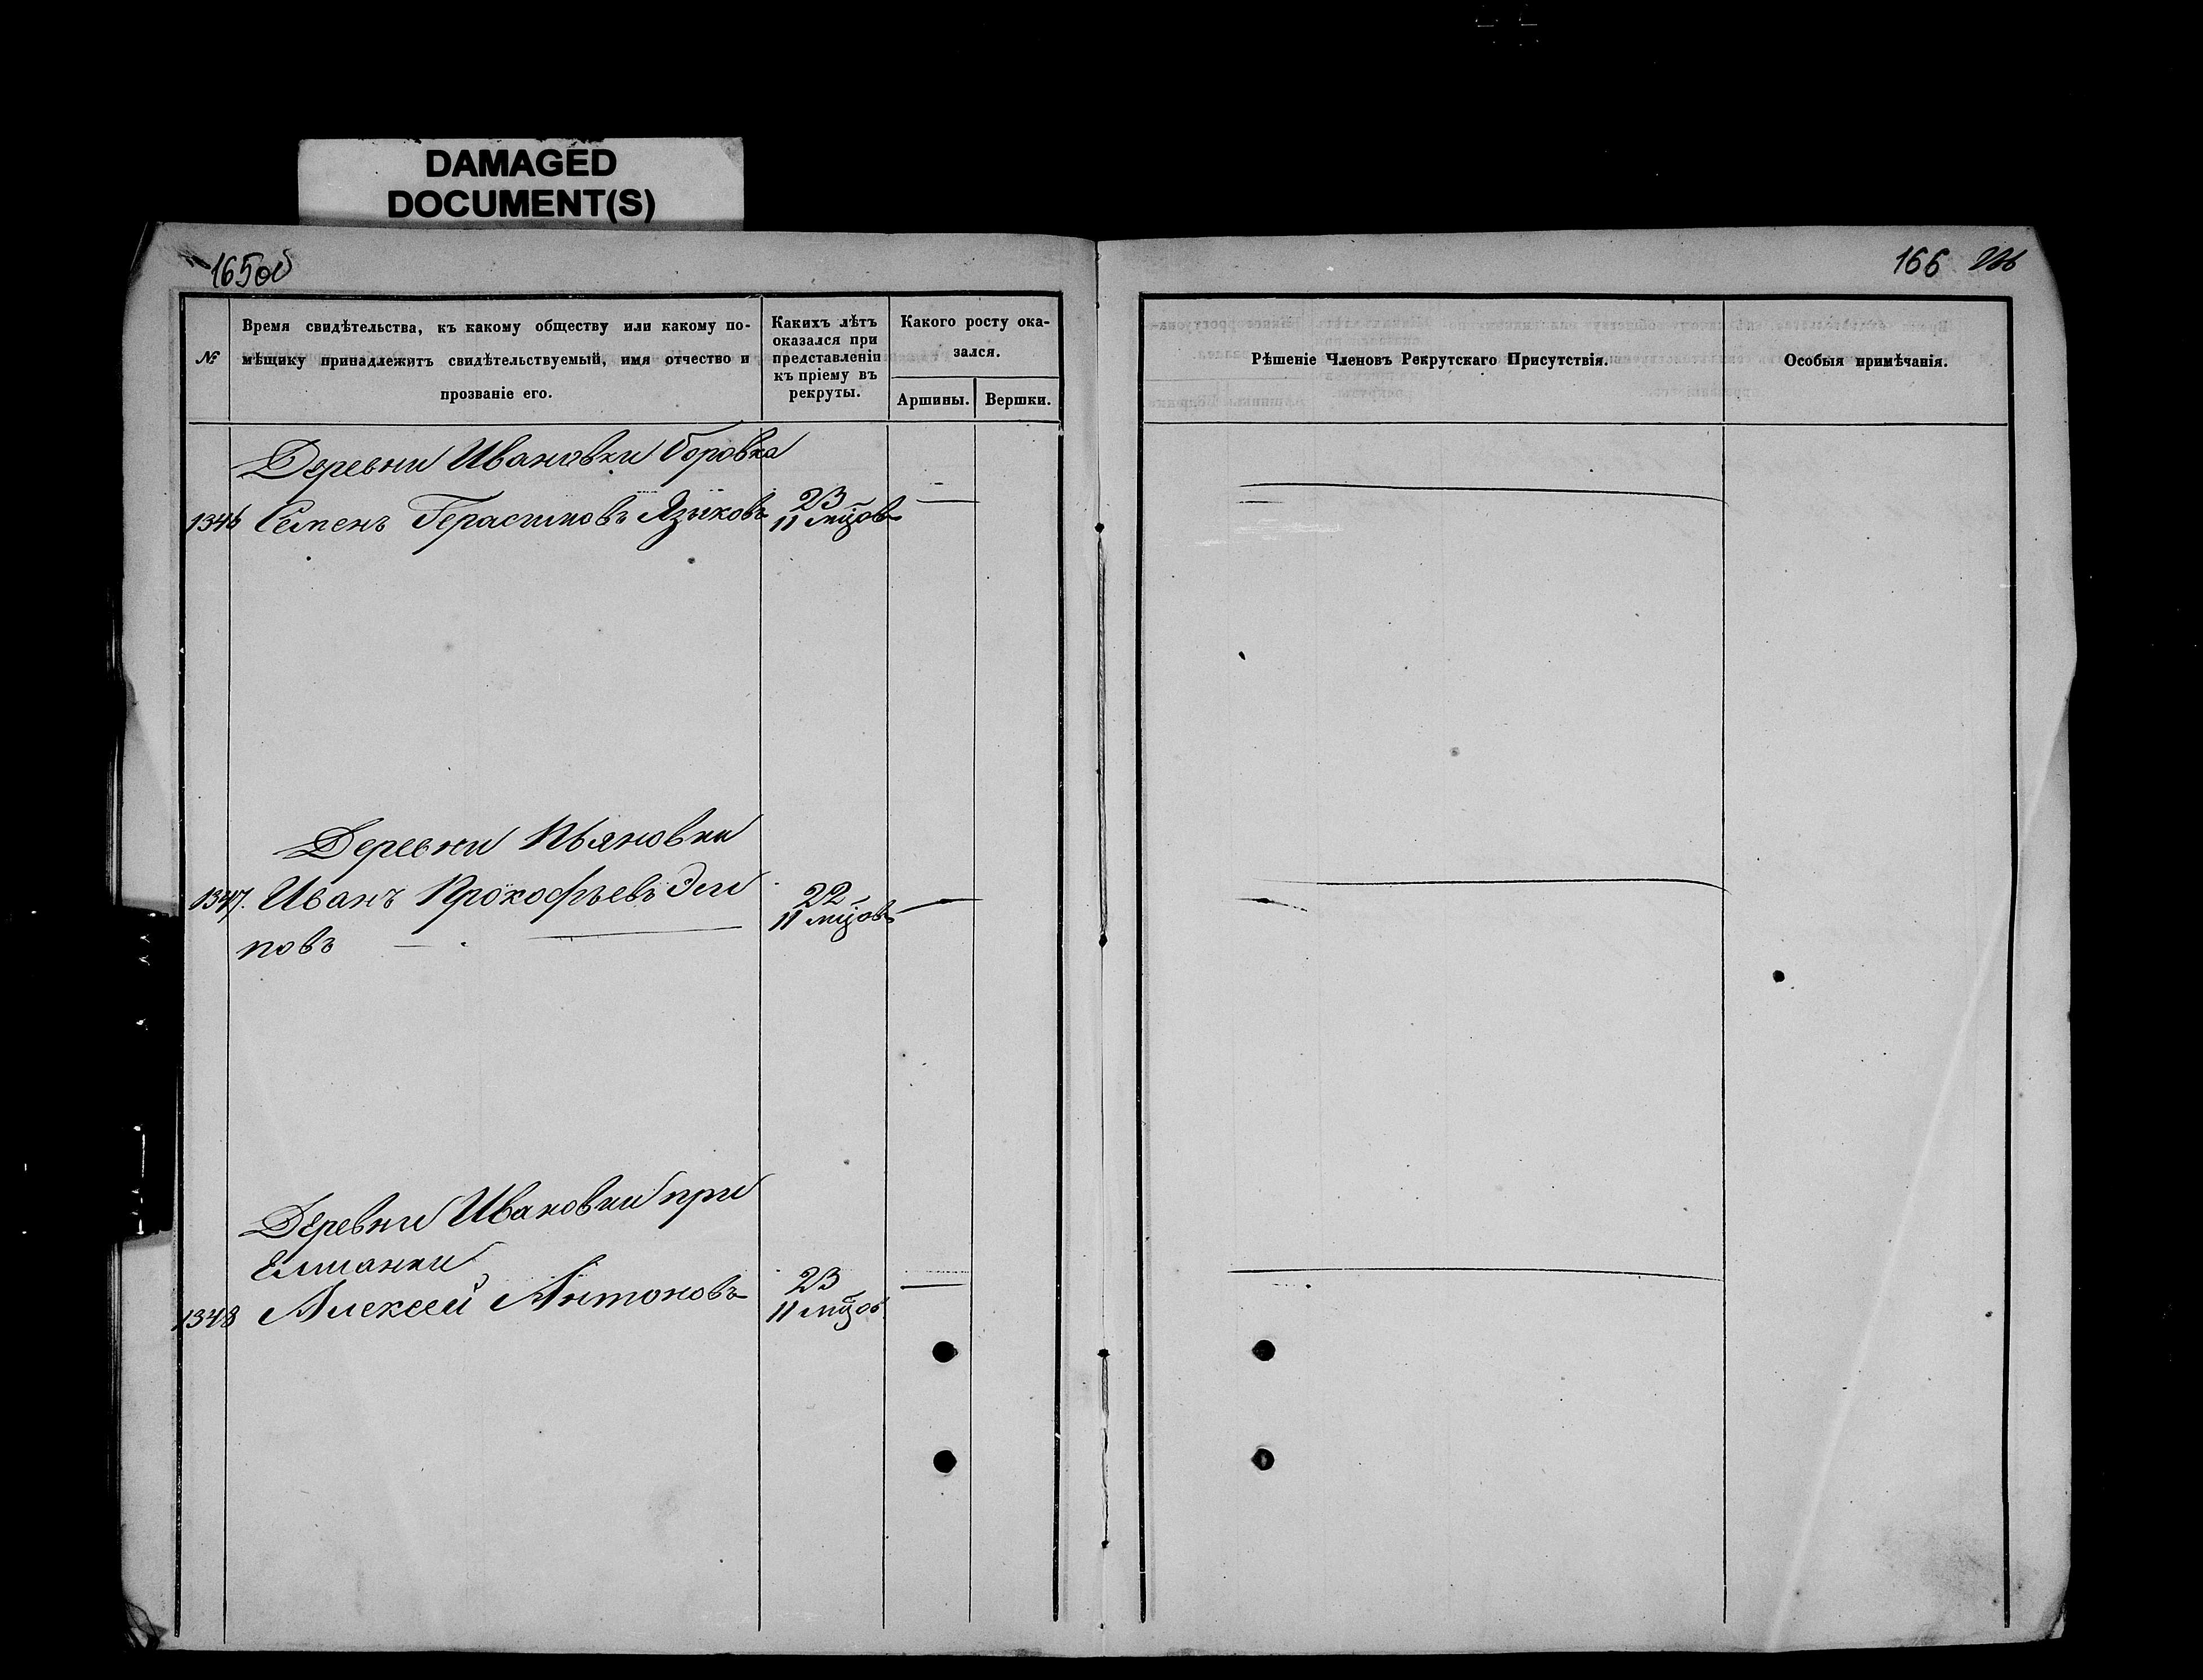 DAMAGED
DOCUMENT(S)
165об
166
№
Время свидѣтельства, къ какому обществу или какому по-
мѣщику принадлежитъ свидѣтельствуемый, имя отчество и
прозваніе его.
Какихъ лѣтъ
оказался при
представленіи
къ пріему въ
рекруты.
Какого росту ока-
зался.
Аршины.
Вершки.
Рѣшеніе Членовъ Рекрутскаго Присутствія.
Особыя примѣчанія.
Деревни Ивановки Боровка
1346 Семенъ Герасимовъ Языковъ 23
11 мцовъ
Деревни Пьяновки
1347. Иванъ Прокофьевъ 22
11 мцовъ
повъ
Деревни Ивановки при
Елшанки
1348 Алексей Антоновъ 23
11 мцов